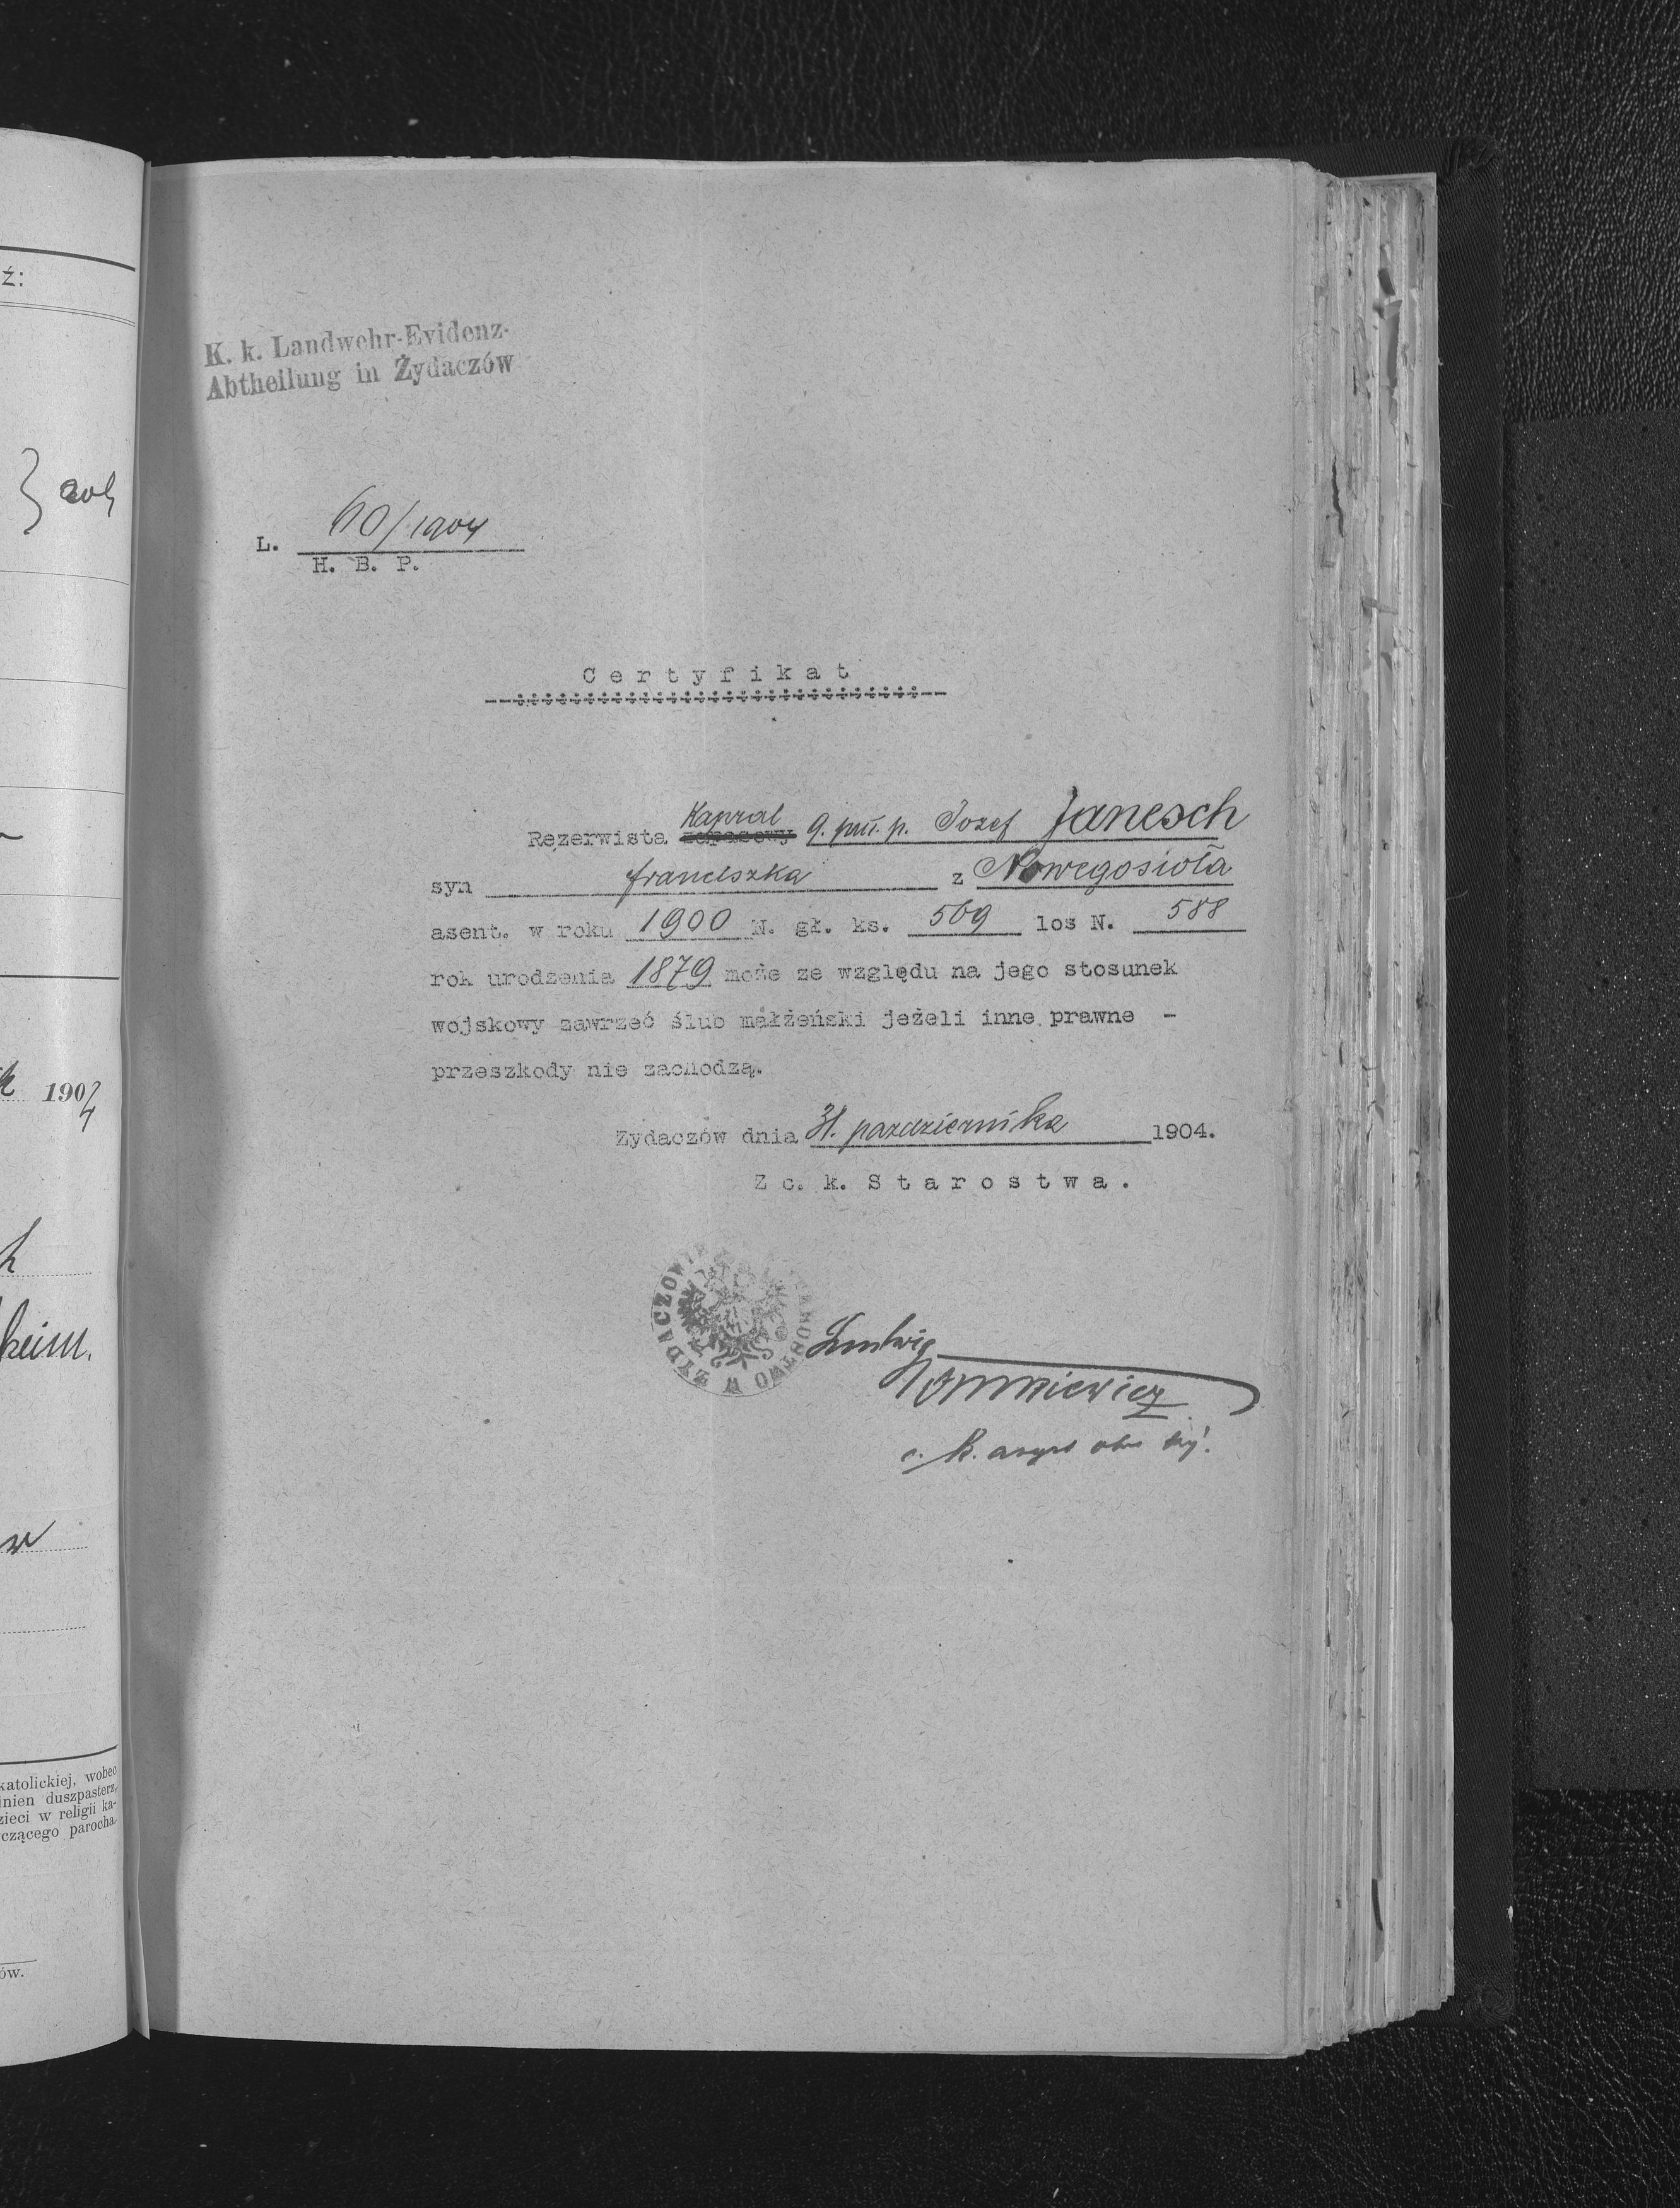 ź:
K. k. Landwehr-Evidenz-
Abtheilung in Żydaczów
L. 60/1904
H. B. P.
Certyfikat
Rezerwista Kapral zapasowy 9. puł. p. Jozef Janesch
syn franciszka z Nowegosioła
asent. w roku 1900 N. gł. ks. 569 los N. 588
rok urodzenia 1879 może ze względu na jego stosunek
wojskowy zawrzeć ślub małżeński jeżeli inne prawne -
przeszkody nie zachodzą.
Zydaczów dnia 31. pazdziernika 1904.
Z c. k. Starostwa.
W ZYDACZOWIE
Ludwig
c. k.
1904
heim.
katolickiej, wobec
inien duszpasterz,
zieci w religii ka-
czącego parocha.
ów.